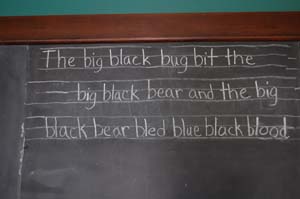 The big black bug bit the
big black bear and the big
black bear bled blue black blood